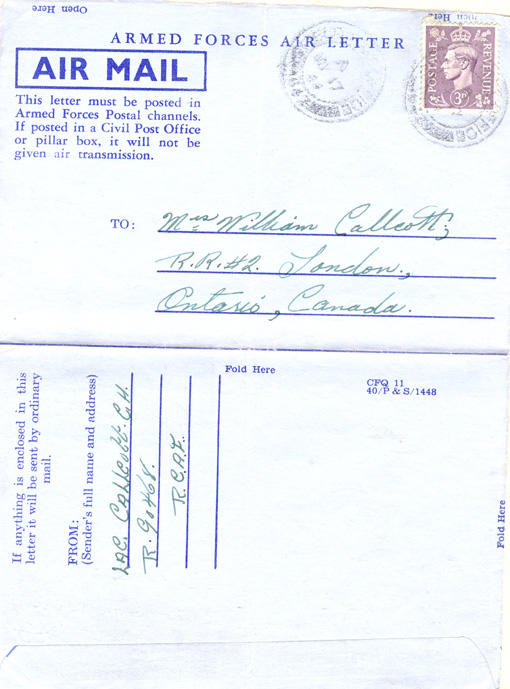 Open Here
Open Here
ARMED FORCES AIR LETTER
AIR MAIL
POSTAGE
REVENUE
3D
This letter must be posted in
Armed Forces Postal channels.
If posted in a Civil Post Office
or pillar box, it will not be
given air transmission.
TO:
Mrs William Callcott,
R.R.#2. London,
Ontario, Canada.
Fold Here
CFQ 11
40/P & S/1448
If anything is enclosed in this
letter it will be sent by ordinary
mail.
FROM:
(Sender's full name and address)
LAC. CALLCOTT. G.H.
R. 90468.
R.C.A.F.
Fold Here